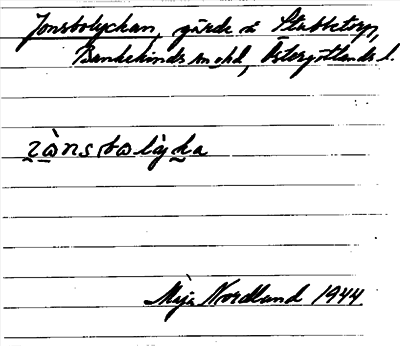 Jonsbolyckan, gärde å Stubbetorp,
Bankekinds sn o hd, Östergötlands l.
Maja Nordlund 1944